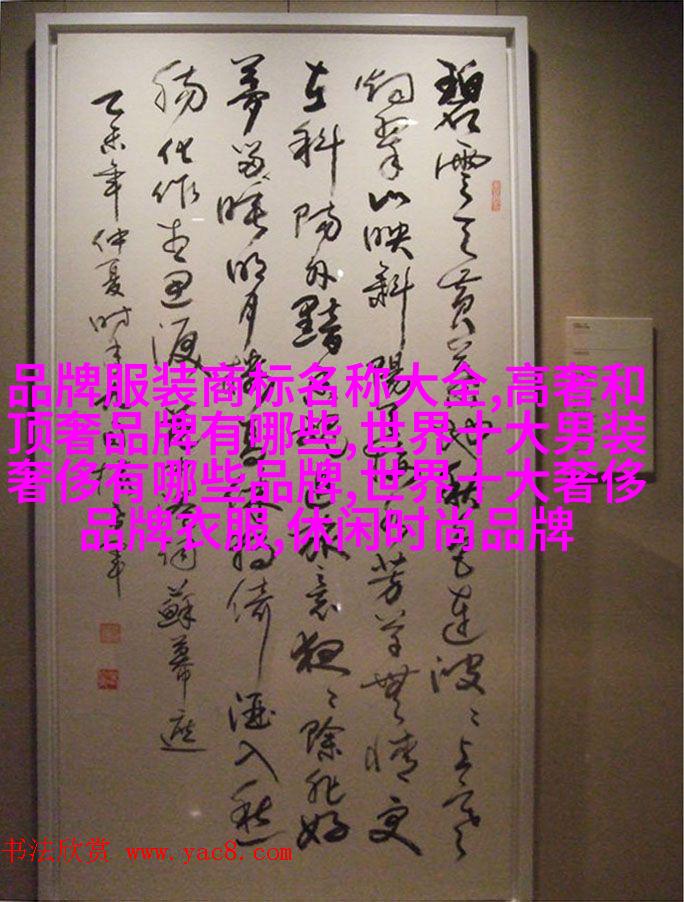 碧雲天黄葉地秋色連波〻上寒
烟翠山映斜陽天接水芳草無情更
在斜陽外黯追旅意夜〻除非好
夢留睡明月樓高獨倚酒入愁
肠化作相思泪詞蘇幕遮
乙未年仲夏时
品牌服装商标名称大全,高奢和
顶奢品牌有哪些,世界十大男装
奢侈有哪些品牌,世界十大奢侈
品牌衣服,休闲时尚品牌
书法欣赏 www.yac8.com